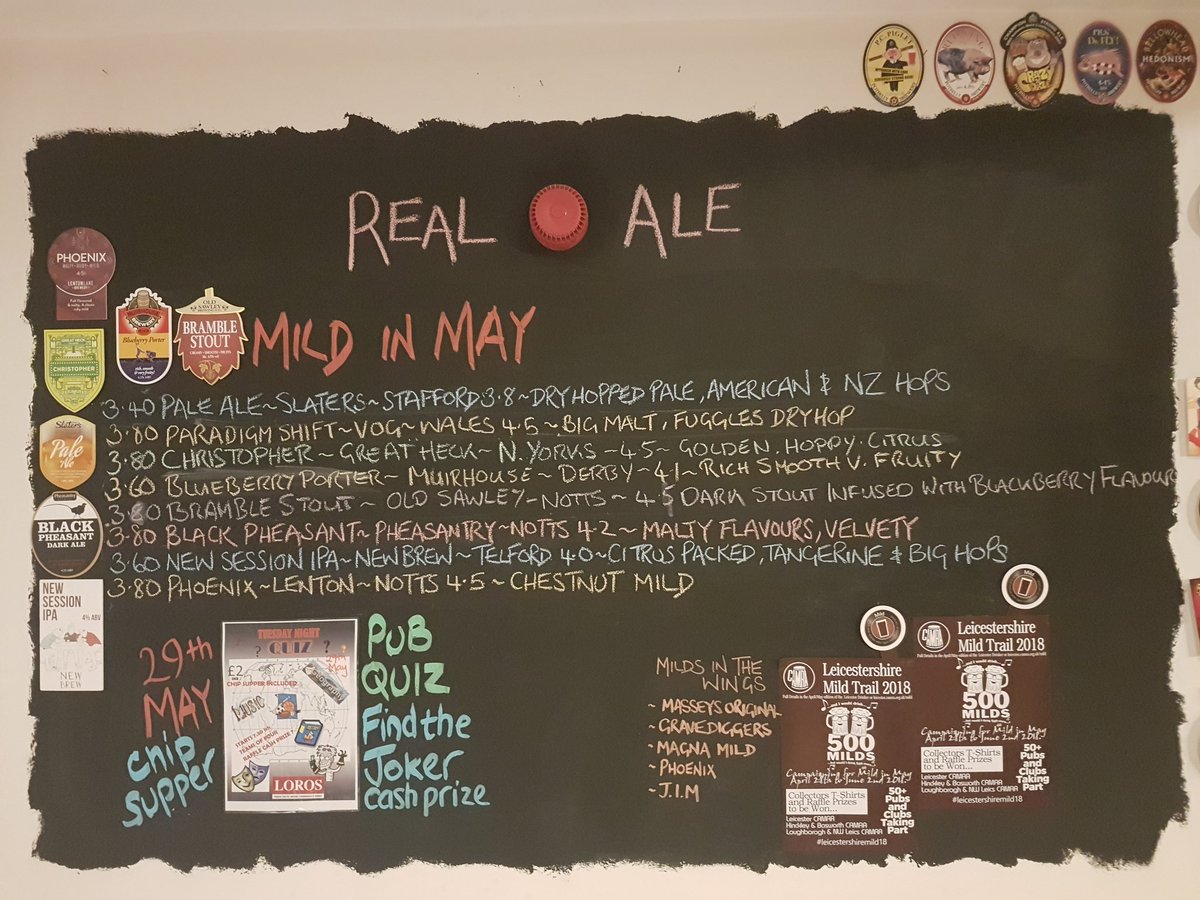 P.C. PIGLET
PIGS DO FLY!
YELLOWHEAD
HEDONISM
REAL ALE
PHOENIX
LENTON LANE
BREWERY
Blueberry Porter
OLD SAWLEY
BRAMBLE
STOUT
MILD IN MAY
GREAT HECK
CHRISTOPHER
3.40 PALE ALE~SLATERS~STAFFORD 3.8~DRY HOPPED PALE, AMERICAN & NZ HOPS
3.80 PARADIGM SHIFT~VOG~WALES 4.5~BIG MALT, FUGGLES DRYHOP
3.80 CHRISTOPHER~GREAT HECK~N. YORKS~4.5~GOLDEN. HOPPY. CITRUS
3.60 BLUEBERRY PORTER~MUIRHOUSE~DERBY~4.1~RICH SMOOTH V. FRUITY
3.80 BRAMBLE STOUT~OLD SAWLEY~NOTTS~4.5 DARK STOUT INFUSED WITH BLACKBERRY FLAVOUR
3.80 BLACK PHEASANT~PHEASANTRY~NOTTS 4.2~MALTY FLAVOURS, VELVETY
3.60 NEW SESSION IPA~NEW BREW~TELFORD 4.0~CITRUS PACKED, TANGERINE & BIG HOPS
3.80 PHOENIX~LENTON~NOTTS 4.5~CHESTNUT MILD
Slaters
Pale
Ale
Pheasantry
BLACK
PHEASANT
DARK ALE
NEW
SESSION
IPA
4% ABV
NEW
BREW
29th
MAY
chip
supper
TUESDAY NIGHT
? QUIZ ?
£2
CHIP SUPPER INCLUDED
MUSIC
LOROS
PUB
QUIZ
Find the
Joker
cash prize
MILDS IN THE
WINGS
~ MASSEYS ORIGINAL
~ GRAVEDIGGERS
~ MAGNA MILD
~ PHOENIX
~ J.I.M
CAMRA
Leicestershire
Mild Trail 2018
and I would drink...
500
MILDS
Campaigning for Mild in May
April 28th to June 2nd 2018
Collectors T-Shirts
and Raffle Prizes
to be Won...
Leicester CAMRA
Hinckley & Bosworth CAMRA
Loughborough & NW Leics CAMRA
50+
Pubs
and
Clubs
Taking
Part
#leicestershiremild18
CAMRA
Leicestershire
Mild Trail 2018
and I would drink...
500
MILDS
Campaigning for Mild in May
April 28th to June 2nd 2018
Collectors T-Shirts
and Raffle Prizes
to be Won...
Leicester CAMRA
Hinckley & Bosworth CAMRA
Loughborough & NW Leics CAMRA
50+
Pubs
and
Clubs
Taking
Part
#leicestershiremild18